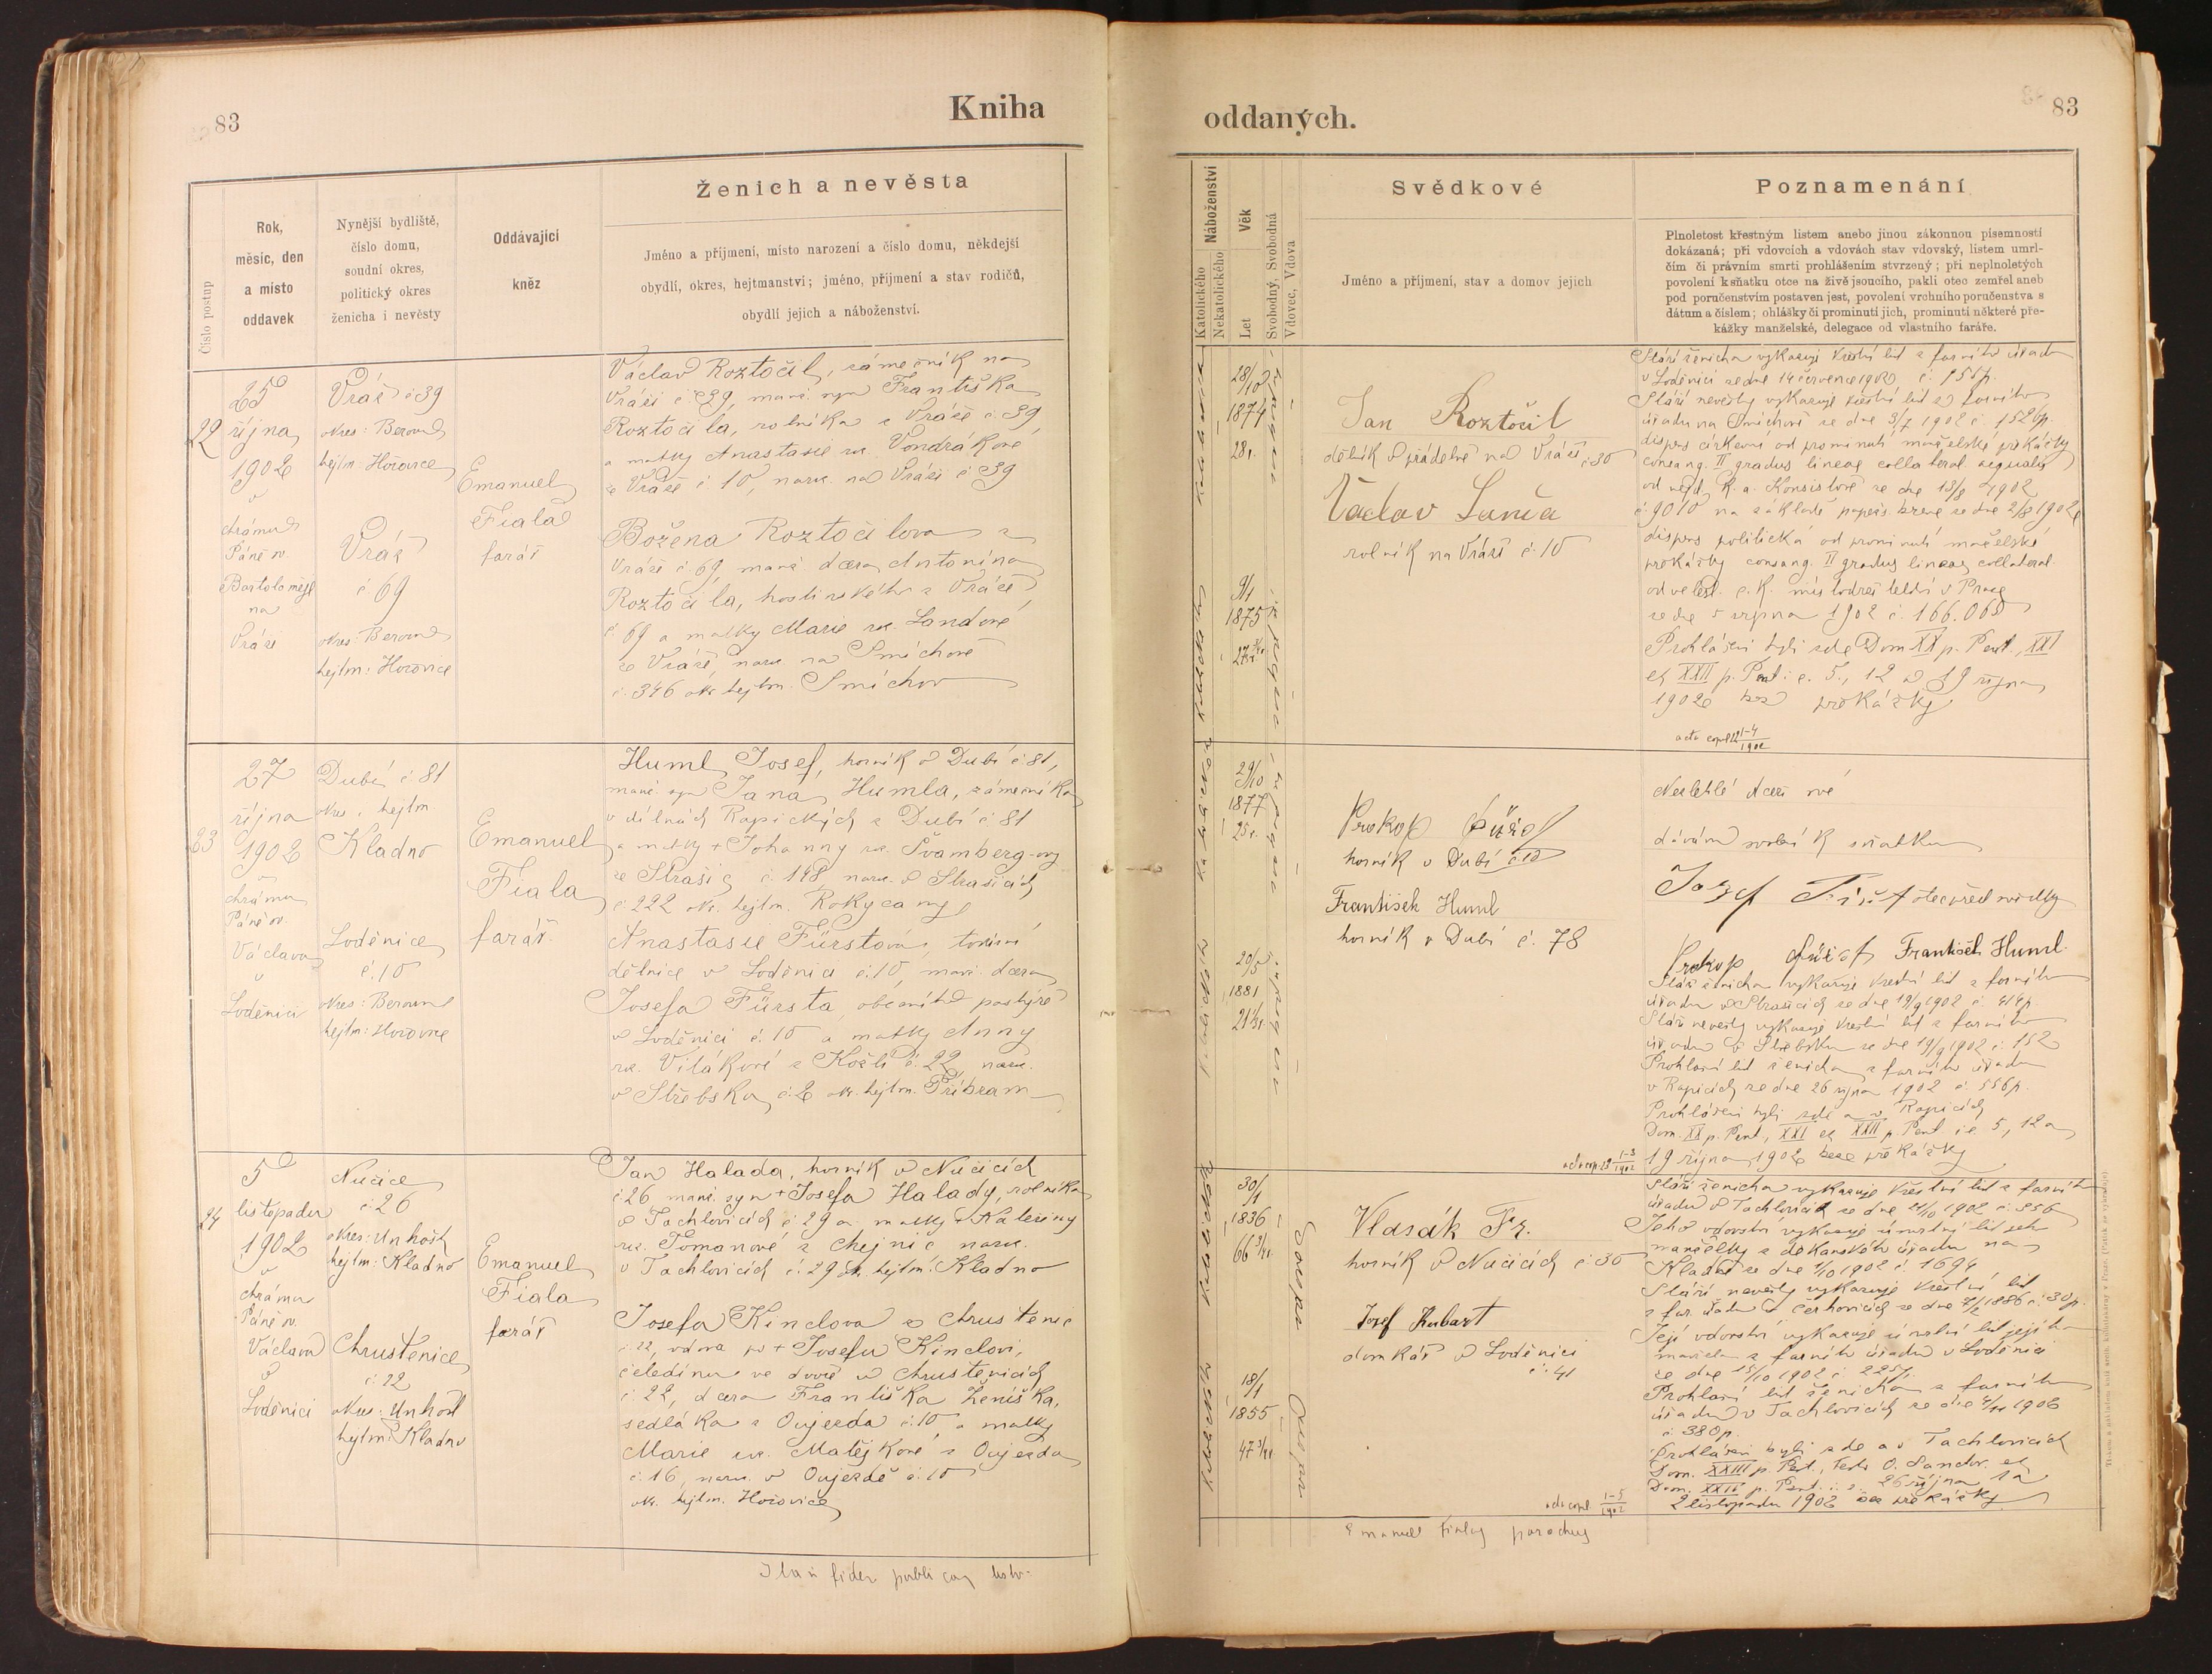 83
Kniha
Číslo postup
Rok,
měsíc, den
a místo
oddavek
Nynější bydliště,
číslo domu,
soudní okres,
politický okres
ženicha i nevěsty
Oddávající
kněz
Ženich a nevěsta
Jméno a příjmení, místo narození a číslo domu, někdejší
obydlí, okres, hejtmanství; jméno, příjmení a stav rodičů,
obydlí jejich a náboženství.
22
25
října
1902
v
chrámu
Páně sv.
Bartoloměje
na
Vráži
Vráž č 39
okres: Beroun
hejtm: Hořovice
Vráž
č 69
okres: Beroun
hejtm: Hořovice
Emanuel
Fiala
farář
Václav Roztočil, zámečník na
Vráži č 39, manž. syn Františka
Roztočila, rolníka z Vráže č 39,
a matky Anastasie roz. Vondrákové
ze Vráže č. 10, naroz. na Vráži č 39
Božena Roztočilova z
Vráže č. 69, manž dcera Antonína
Roztočila, hostinského z Vráže
č. 69 a matky Marie roz. Landové
ze Vráže naroz. na Smíchově
č. 346 okr. hejtm. Smíchov
23
27
října
1902
v
chrámu
Páně sv.
Václava
v
Loděnici
Dubí č 81
okres i hejtm.
Kladno
Loděnice
č. 10
okres: Beroun
hejtm: Hořovice
Emanuel
Fiala
farář.
Huml Josef, horník v Dubí č. 81,
manž. syn Jana Humla, zámečníka
v dílnách Rapických z Dubí č. 81
a matky + Johanny roz. Švamberg-ovy
ze Strašic č. 148, naroz. v Strašicích
č. 222 okr. hejtm. Rokycany
Anastasie Fürstová, tovární
dělnice v Loděnici č. 10, manž. dcera
Josefa Fürsta, obecního pastýře
v Loděnici č. 10 a matky Anny
roz. Vilákové z č. 22, naroz.
v Střebsku č. 2 okr. hejtm. Příbram
24
5
listopadu
1902
v
chrámu
Páně sv.
Václava
v
Loděnici
Nučice
č 26
okres: Unhošť
hejtm: Kladno
Chrustenice
č. 22
okres: Unhošť
hejtm: Kladno
Emanuel
Fiala
farář
Jan Halada, horník v Nučicích
č 26 manž. syn + Josefa Halady, rolníka
v Tachlovicích č 29 a matky + Kateřiny
roz. Tomanové z Chejnic naroz.
v Tachlovicích č. 29 okr. hejtm. Kladno
Josefa Kinclova z Chrustenic
č. 22, vdova po + Josefu Kinclovi,
čeledínu ve dvoře v Chrustenicích
č 22, dcera Františka Ženíška,
sedláka z Oujezda č. 10, a matky
Marie roz. Matějkové z Oujezda
č. 16, naroz. v Oujezdě č. 10
okr. hejtm. Hořovice
fidem publicam
83
oddaných.
Náboženství
Katolického
Nekatolického
Věk
Let
Svobodný, Svobodná
Vdovec, Vdova
Svědkové
Jméno a příjmení, stav a domov jejich
Poznamenání
Plnoletost křestným listem anebo jinou zákonnou písemností
dokázaná; při vdovcích a vdovách stav vdovský, listem umrl-
čím či právním smrti prohlášením stvrzený; při neplnoletých
povolení k sňatku otce na živě jsoucího, pakli otec zemřel aneb
pod poručenstvím postaven jest, povolení vrchního poručenstva s
dátum a číslem; ohlášky či prominutí jich, prominutí některé pře-
kážky manželské, delegace od vlastního faráře.
28/10
1874
28 r.
9/1
1875
Jan Roztočil
dělník v přádelně na Vráži č 30
Václav
rolník na Vráži č. 10
Stáří ženicha vykazuje křestní list z farního úřadu
v Loděnici ze dne 14 července 1902 č. 151 p.
Stáří nevěsty vykazuje křestní list z farního
úřadu na Smíchově ze dne 3/7 1902 č. 1526 p.
dispens církevní od prominutí manželské překážky
consang. II gradus lineae collateral. aequalis
od nejd. k. a. Konsistoře ze dne 18/8 1902
č. 9010 na základě papežs. breve ze dne 2/8 1902
dispens politická od prominutí manželské
překážky consang. II gradus lineae collateral.
od velesl. c. k. místodržitelství v Praze
ze dne 5 srpna 1902 č. 166.060
Prohlášeni byli zde Dom XX p. Pent., XXI
et XXII p. Pent. i. e. 5., 12 a 19 října
1902 bez překážky
29/10
1877
25 r.
20/5
1881
Prokop Fürst
horník v Dubí č 10
František Huml
horník v Dubí č. 78
Nezletilé dceři mé
dávám svolení k sňatku
Jozef Fürst otec před svědky
Prokop Fürst František Huml.
Stáří ženicha vykazuje křestní list z farního
úřadu v Strašicích ze dne 19/9 1902 č. 414 p.
Stáří nevěsty vykazuje křestní list z farního
úřadu v Střebsku ze dne 19/9 1902 č. 152
Prohlašní list ženicha z farního úřadu
v Rapicích ze dne 26 října 1902 č. 556 p.
Prohlášeni byli zde a v Rapicích
Dom. XX p. Pent., XXI et XXII p. Pent i. e. 5., 12 a
19 října 1902 beze překážky
30/1
1836
66 3/4 r.
18/1
1855
47 3/4 r.
Vlasák Fr.
horník v Nučicích č 30
Josef Hubart
domkář v Loděnici
č. 41
Stáří ženicha vykazuje křestní list z farního
úřadu v Tachlovicích ze dne 1902 č. 356
Jeho vdovství vykazuje úmrtní list jeho
manželky z děkanského úřadu na
Kladně ze dne 1/10 1902 č. 1694
Stáří nevěsty vykazuje křestní list
z far. úřadu v Čerhovicích ze dne 1886 č. 30 p.
Její vdovství vykazuje úmrtní list jejího
manžela z farního úřadu v Loděnici
ze dne 15/10 1902 č. 225 p.
Prohlašní list ženicha z farního
úřadu v Tachlovicích ze dne 1902
č. 380 p.
Prohlášeni byli zde a v Tachlovicích
Dom. XXIII p. Pent., Festo O. Sanctor. et
Dom. XXIV p. Pent. i. e. 26 října 1 a
2 listopadu 1902 bez překážky
Emanuel Fiala parochus